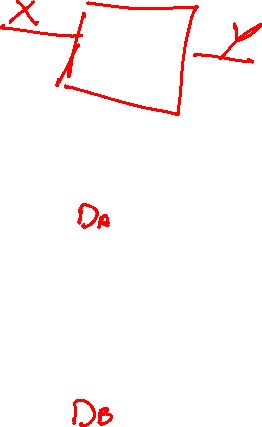 X Y
DA
DB